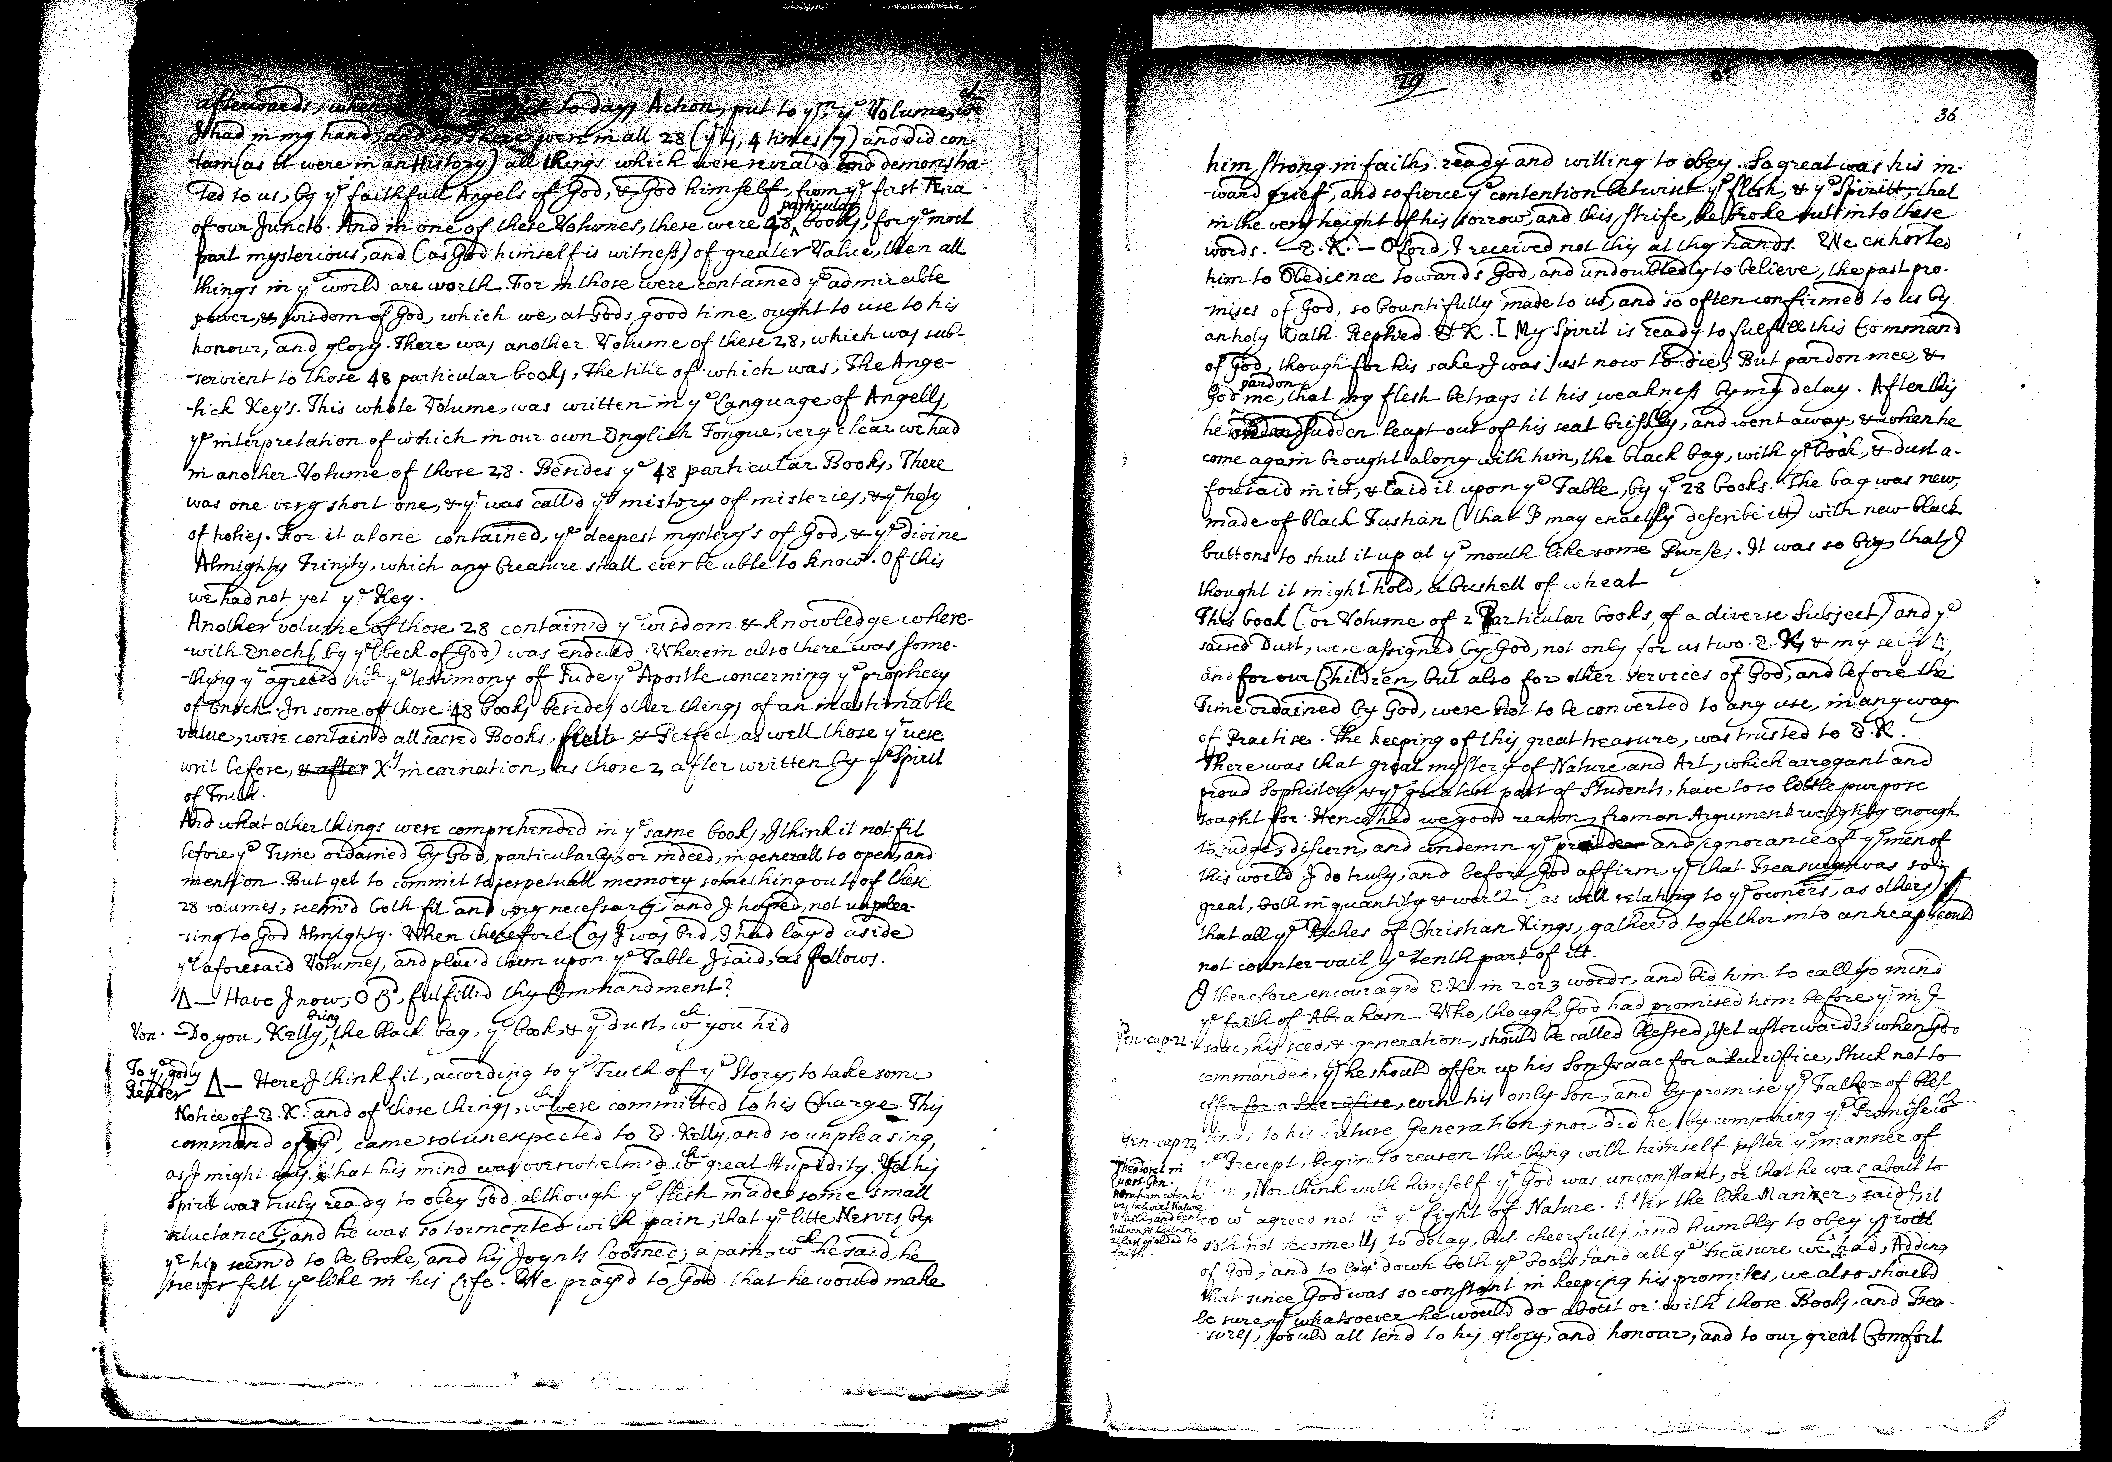 afterwards, when to days Action, put to yᵐ, yᵉ Volumes, wᶜʰ
I had in my hand, were in all 28 (yᵗ is, 4 times 7) and did con
tain (as it were in an History) all things which were reveal'd and demonstra-
ted to us, by yᵉ faithfull Angels of God, & God himself, from yᵉ first Hera
of our Juncto. And in one of these Volumes, there were 48 particular books, for yᵉ most
part mysterious, and (as God himself is witness) of greater Value, then all
things in yᵉ world are worth. For in those were contained yᵉ admirable
power, & wisdom of God, which we, at Gods good time ought to use to his
honour, and glory. There was another Volume of these 28, which was sub-
servient to those 48 particular books, The title of which was, The Ange-
lick Key's. This whole Volume, was written in yᵉ Language of Angells,
yᵉ interpretation of which in our own English Tongue, very clear we had
in another Volume of those 28. Besides yᵉ 48 particular Books, There
was one very short one, & yᵗ was call'd yᵉ mistery of misteries, & yᵉ holy
of holies. For it alone contained, yᵉ deepest mystery's of God, & yᵉ divine
Almighty Trinity, which any Creature shall ever be able to know. Of this
we had not yet yᵉ Key.
Another volume of those 28 contain'd yᵉ wisdom & knowledge where-
with Enoch (by yᵉ beck of God) was endued. Wherein also there was some-
thing yᵗ agreed wᵗʰ yᵉ testimony of Jude yᵉ Apostle concerning yᵉ prophecy
of Enoch. In some of those 48 books besides other things of an inestimable
value, were contain'd all sacred Books, & Perfect, as well those yᵗ were
writ before, & after Xᵗˢ incarnation, as those 2 after written by yᵉ Spirit
of Truth.
And what other things were comprehended in yᵉ same books, I think it not fit
before yᵉ Time ordained by God, particularly, or indeed, in generall to open, and
mention. But yet to commit to perpetuall memory something out of these
28 volumes, seem'd both fit and very necessary, and I hoped, not unplea-
sing to God Almighty. When therefore (as I was bid, I had lay'd aside
yᵉ aforesaid Volumes, and plac'd them upon yᵉ Table I said, as follows.
Δ — Have I now, O G, fulfilled thy Commandment?
Vox. — Do you, Kelly, bring the black bag, yᵉ book, & yᵉ dust, wᶜʰ you hid
To yᵉ godly
Reader
Δ — Here I think fit, according to yᵉ Truth of yᵉ Story, to take some
Notice of E. K. and of those things, wᶜʰ were committed to his Charge. This
command of G, came so unexpected to E. Kelly, and so unpleasing,
as I might say, that his mind was overwhelm'd wᵗʰ great Stupidity. Yet his
Spirit was truly ready to obey God, although yᵉ flesh made some small
reluctance; and he was so tormented with pain, that yᵉ litte Nerves by
yᵉ hip seem'd to be broke, and his Joynts loosned; a pain wᶜʰ he said, he
never felt yᵉ like in his Life. We pray'd to God that he would make
29
36
him strong in faith, ready and willing to obey. So great was his in-
ward grief, and so fierce yᵉ contention betwixt yᵉ flesh, & yᵉ Spiritt, that
in the very height of his sorrow, and this strife, he broke out into these
words. — E. K. — O Lord, I received not this at thy hands. We exhorted
him to Obedience towards God, and undoubtedly to believe, the past pro-
mises of God, so bountifully made to us, and so often confirmed to us by
an holy Oath. Replied E K. [ My Spirit is ready to fulfill this Command
of God, though for his sake, I was just now to die; But pardon mee, &
God pardon me, that my flesh betrays it his weakness by my delay. After this
he sudden leapt out of his seat briskly, and went away, & when he
come again brought along with him, the black bag, with yᵉ book, & dust a-
foresaid in itt, & laid it upon yᵉ Table, by yᵉ 28 books. The bag was new,
made of black Fustian (that I may exactly describe itt) with new black
buttons to shut it up at yᵉ mouth like some Purses. It was so big, that I
thought it might hold, a bushell of wheat
This book (or Volume of 2 Particular books, of a diverse Subject) and yᵉ
sacred Dust, were assigned by God, not only for us two E. K, & my self Δ,
and for our Children, but also for other services of God, and before the
Time ordained by God, were not to be converted to any use, in any way
of Practise. The keeping of this great treasure, was trusted to E. K.
There was that great mystery of Nature and Art, which arrogant and
proud Sophisters, & yᵉ greatest part of Students, have to so little purpose
sought for. Hence had we good reason, from an Argument weighty enough
to judge, discern, and condemn yᵉ and ignorance of yᵉ men of
this world. I do truly, and before God affirm, yᵗ that Treasury was so
great, both in quantity & worth, as well relating to yᵉ owners, as others,
that all yᵉ Riches of Christian Kings, gather'd together into an heap, could
not counter-vail yᵉ tenth part of itt.
I therefore encourag'd E. K. in 2 or 3 words, and bid him to call to mind
yᵉ faith of Abraham. Who, though God had promised him before yᵗ in I-
Gen. cap. 21
saac, his seed & generation, should be called blessed, yet afterwards when God
commanded, yᵗ he should offer up his Son Isaac for a sacrifice, stuck not to
offer for a sacrifice, even his only Son, and by promise yᵉ Father of bles-
sings to his future Generation; nor did he, by comparing yᵉ Promise wᵗʰ
Gen. cap. 22
yᵉ Precept, begin to reason the thing with himself after yᵉ manner of
Nor think with himself yᵗ God was unconstant, or that he was about to
agreed not wᵗʰ yᵉ Light of Nature. After the like Manner, said I, it
doth not become us to delay, but cheerfully, and humbly to obey yᵉ will
of God; and to lay down both yᵉ Books, and all yᵉ Treasure we had, Adding
that since God was so constant in keeping his promises, we also should
be sure yᵗ whatsoever he would do about or with those Books, and Trea-
sures, would all tend to his glory, and honour, and to our great Comfort